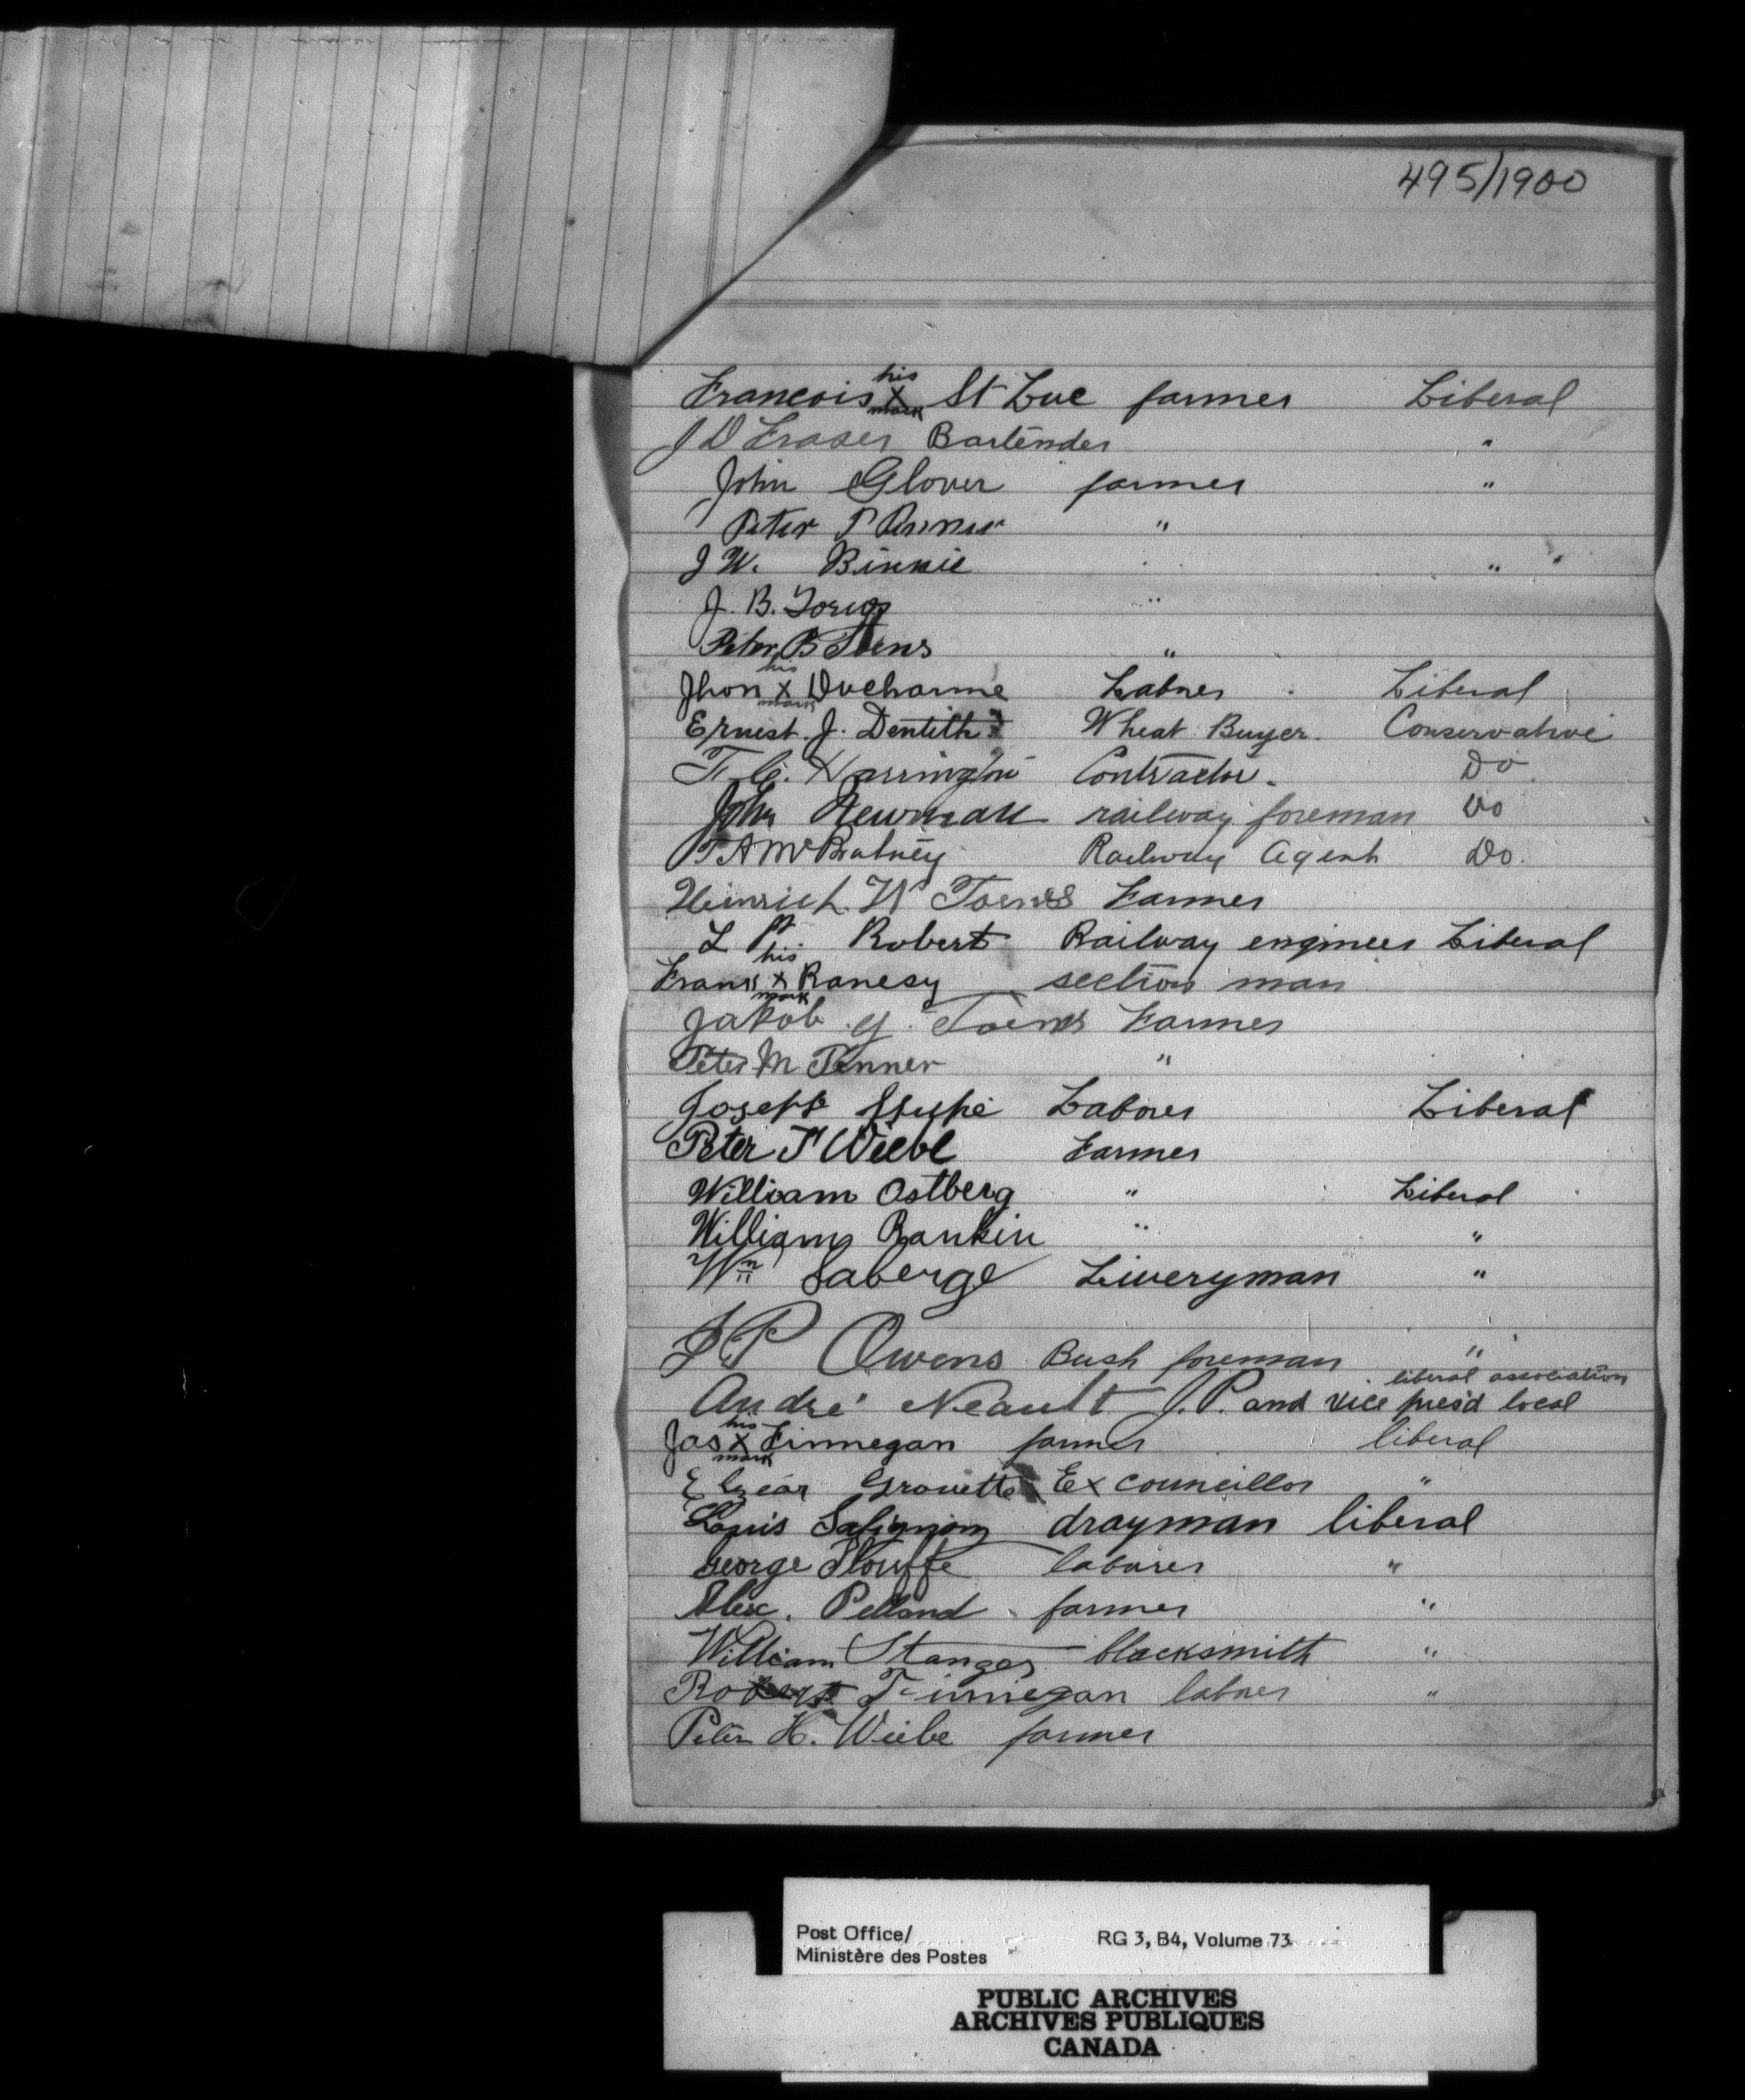 495/1900
Francois his X mark St Luc farmer Liberal
J D Fraser Bartender "
John Glover farmer "
Peter P Penner "
J W. Binnie " "
J. B. Toews "
Peter B Toews "
Jhon his X mark Ducharme Laborer Liberal
Ernest. J. Dentith Wheat Buyer. Conservative
T. C. Norrington Contractor. Do
John Newman railway foreman Do
T A McBratney Railway Agent Do.
Heinrich. W Toews Farmer
L P. Robert Railway engineer Liberal
Frank his X mark Ranesy section man
Jakob. Y. Toews Farmer
Peter M Penner "
Joseph Laborer Liberal
Peter F Wiebe Farmer
William Ostberg " Liberal
William Rankin " "
Wm Laberge Liveryman "
J P Owens Bush foreman "
liberal association
André Neault J. P. and vice pres'd local
Jas his X mark Finnegan farmer liberal
Elzéar Grouette Ex councillor "
Louis drayman liberal
George Plouffe laborer "
Alex. Pelland farmer "
William Stanger blacksmith "
Robert Finnegan laborer "
Peter H. Wiebe farmer
Post Office/ RG 3, B4, Volume 73
Ministère des Postes
PUBLIC ARCHIVES
ARCHIVES PUBLIQUES
CANADA